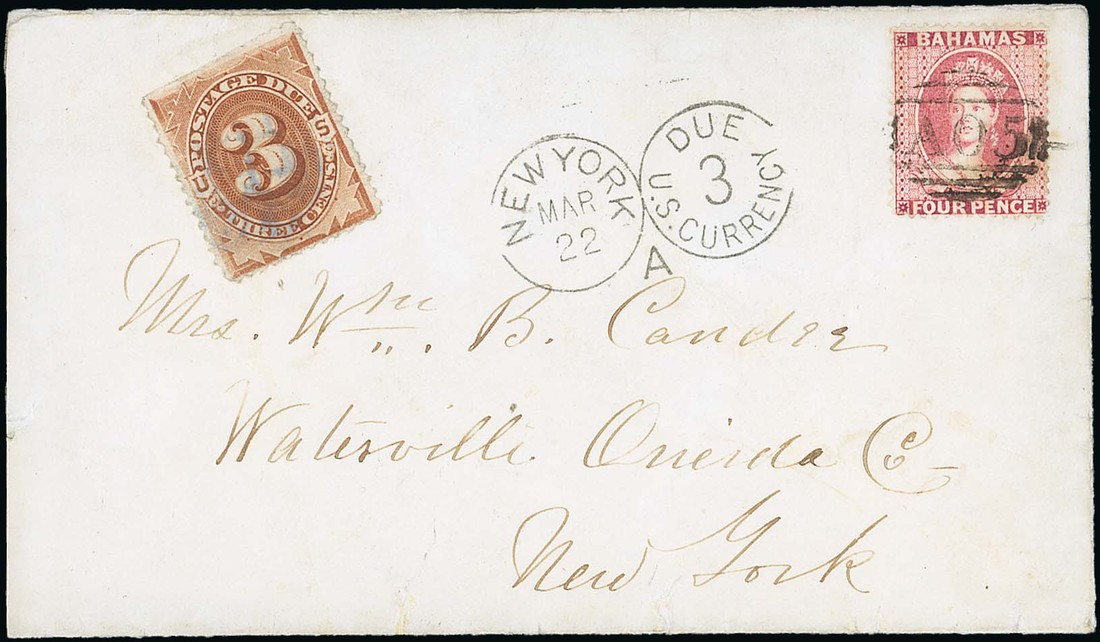 POSTAGE DUE
3
THREE CENTS
BAHAMAS
A05
FOUR PENCE
NEW YORK
MAR
22
DUE
3
U.S. CURRENCY
A
Mrs. Wm. B. Candee
Waterville Oneida Co
New York